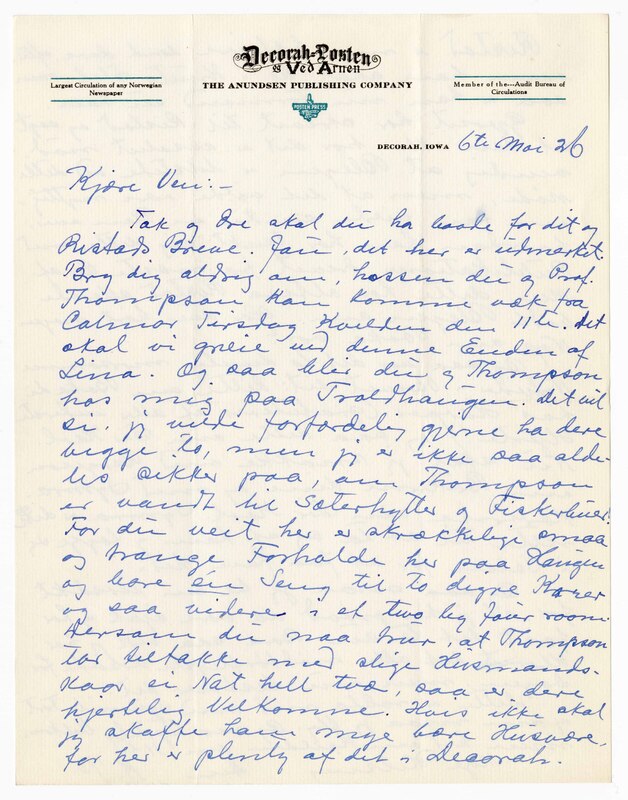 Decorah-Posten
og Ved Arnen
THE ANUNDSEN PUBLISHING COMPANY
Largest Circulation of any Norwegian
Newspaper
Member of the---Audit Bureau of
Circulations
POSTEN PRESS
DECORAH, IOWA 6te Mai 26
Kjære Ven:-
Tak og Ære skal du ha baade for dit og
Ristads Breve. Jau, det her er udmerket.
Bry dig aldrig om, hossen du og Prof.
Thompson kan komme væk fra
Calmar Tirsdag Kvelden den 11te. Det
skal vi greie ved denne Enden af
Lina. Og saa blir du og Thompson
hos mig paa Troldhaugen. Det vil
si, jg vilde forfærdelig gjerne ha dere
begge to, men jg er ikke saa alde-
les sikker paa, om Thompson
er vandt til Sæterhytter og Fiskerbuer.
For du veit her er skrækkelig smaa
og trange Forholde her paa Haugen
og bare en Seng til to digre Karer
og saa videre i et two by four room
Dersom du naa trur, at Thompson
tar tiltakke med slige Husmands-
kaar ei Nat hell two, saa er dere
hjertelig Velkomne. Hvis ikke skal
jg skaffe ham mye bære Husvære,
for her er plenty af det i Decorah.